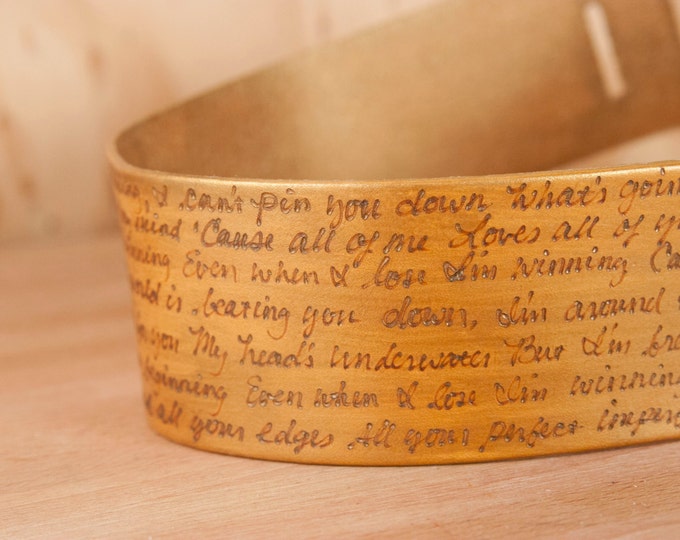 I can't pin you down What's goin
mind 'Cause all of me Loves all of y
Even when I lose I'm winning Ca
is beating you down, I'm around
you My head's underwater But I'm bre
beginning Even when I lose I'm winnin
all your edges All your perfect imper